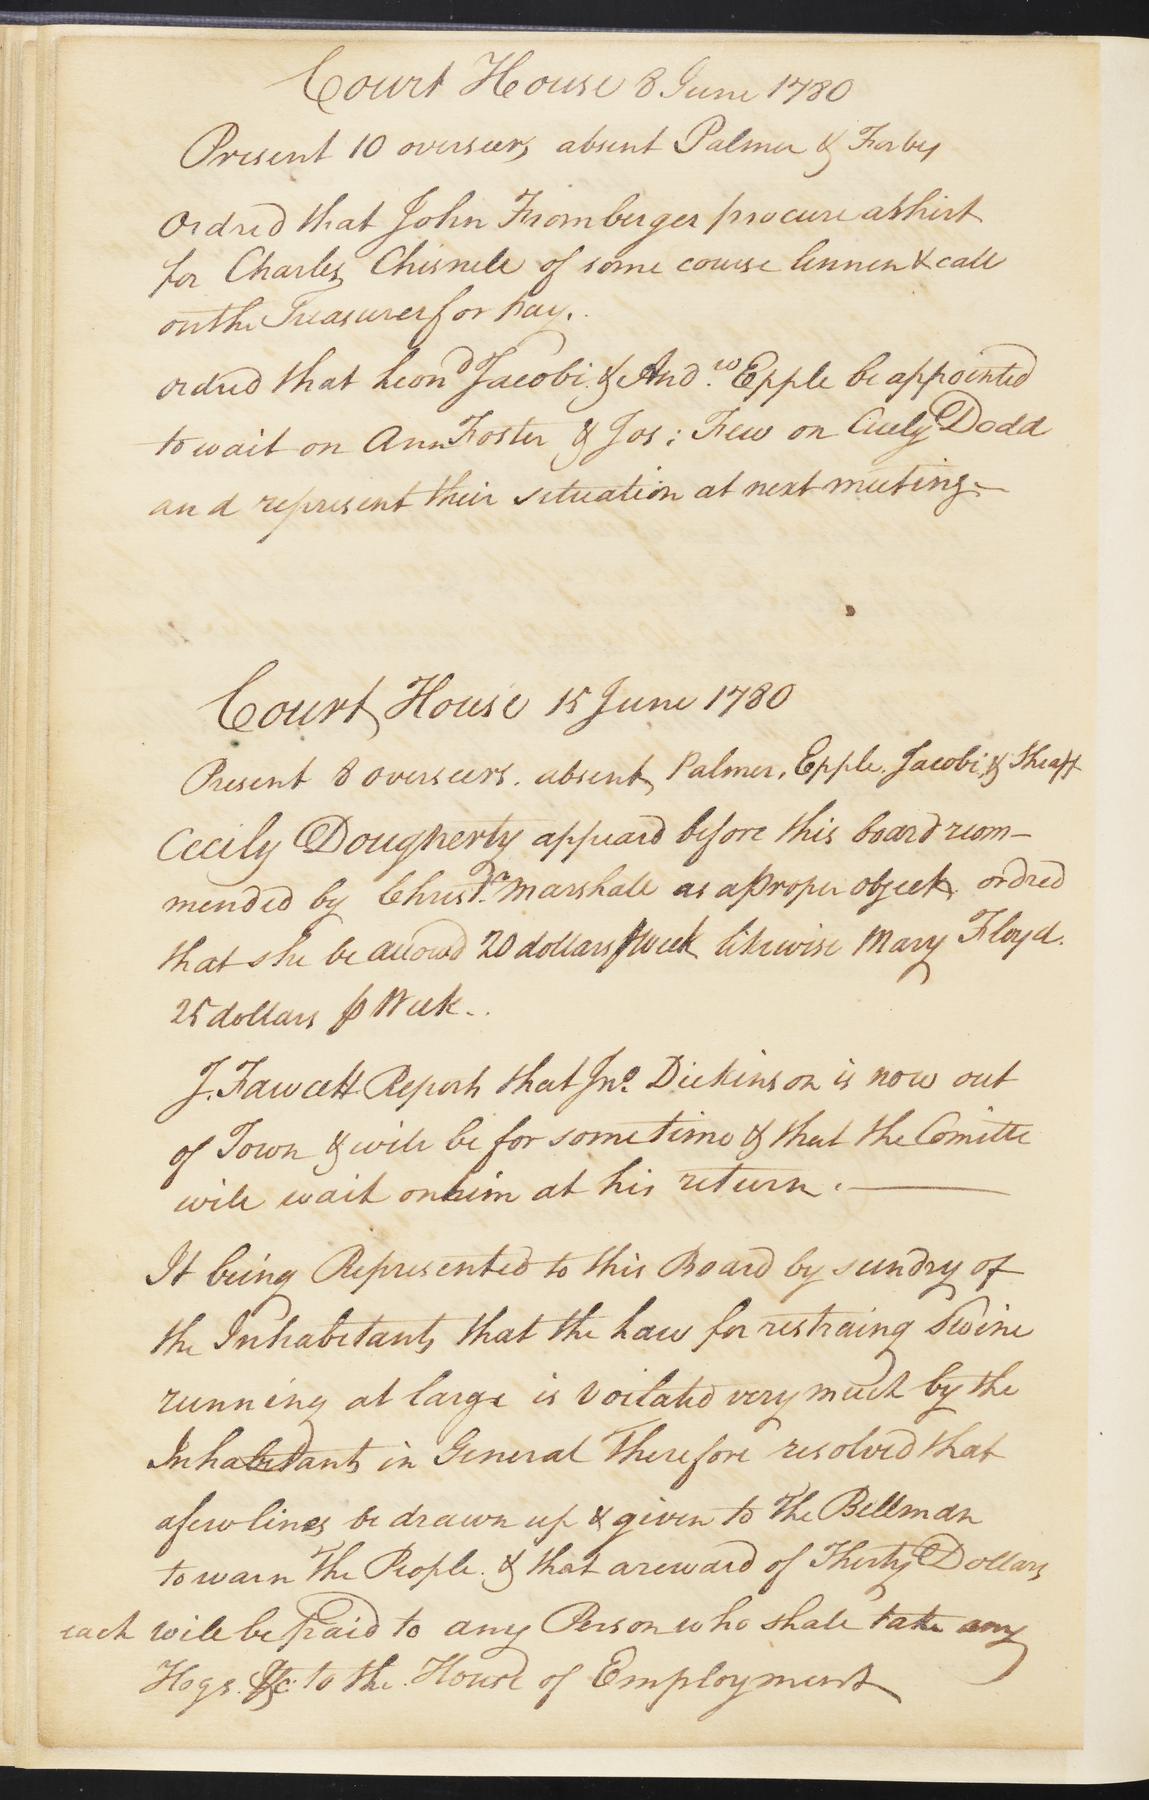 Court House 8 June 1780
Present 10 overseers absent Palmer & Forbes
Ordred that John Fromberger procure a shirt
for Charles Chisnele of some course linnen & call
on the Treasurer for pay.
ordred that Leond Jacobi & Andrw Epple be appointed
to wait on Ann Foster & Jos: Few on Cicely Dodd
and represent their situation at next meeting—
Court House 15 June 1780
Present 8 overseers. absent, Palmer, Epple, Jacobi, & Sheaff
Cecily Dougherty appeard before this board recom-
mended by Christr Marshall as a proper object, ordred
that she be allowd 20 dollars ℔ week likewise Mary Floyd.
25 dollars ℔ Week..
J. Fawcett Reports that Jno. Dickinson is now out
of Town & will be for some time & that the Comitte
will wait on him at his return.—
It being Represented to this Board by sundry of
the Inhabitants that the Law for restraing Swine
running at large is Voilated very much by the
Inhabitants in General Therefore resolved that
a few lines be drawn up & given to the Bellman
to warn the People. & that a reward of Thirty Dollars
each will be paid to any Person who shall take any
Hogs &c: to the House of Employment